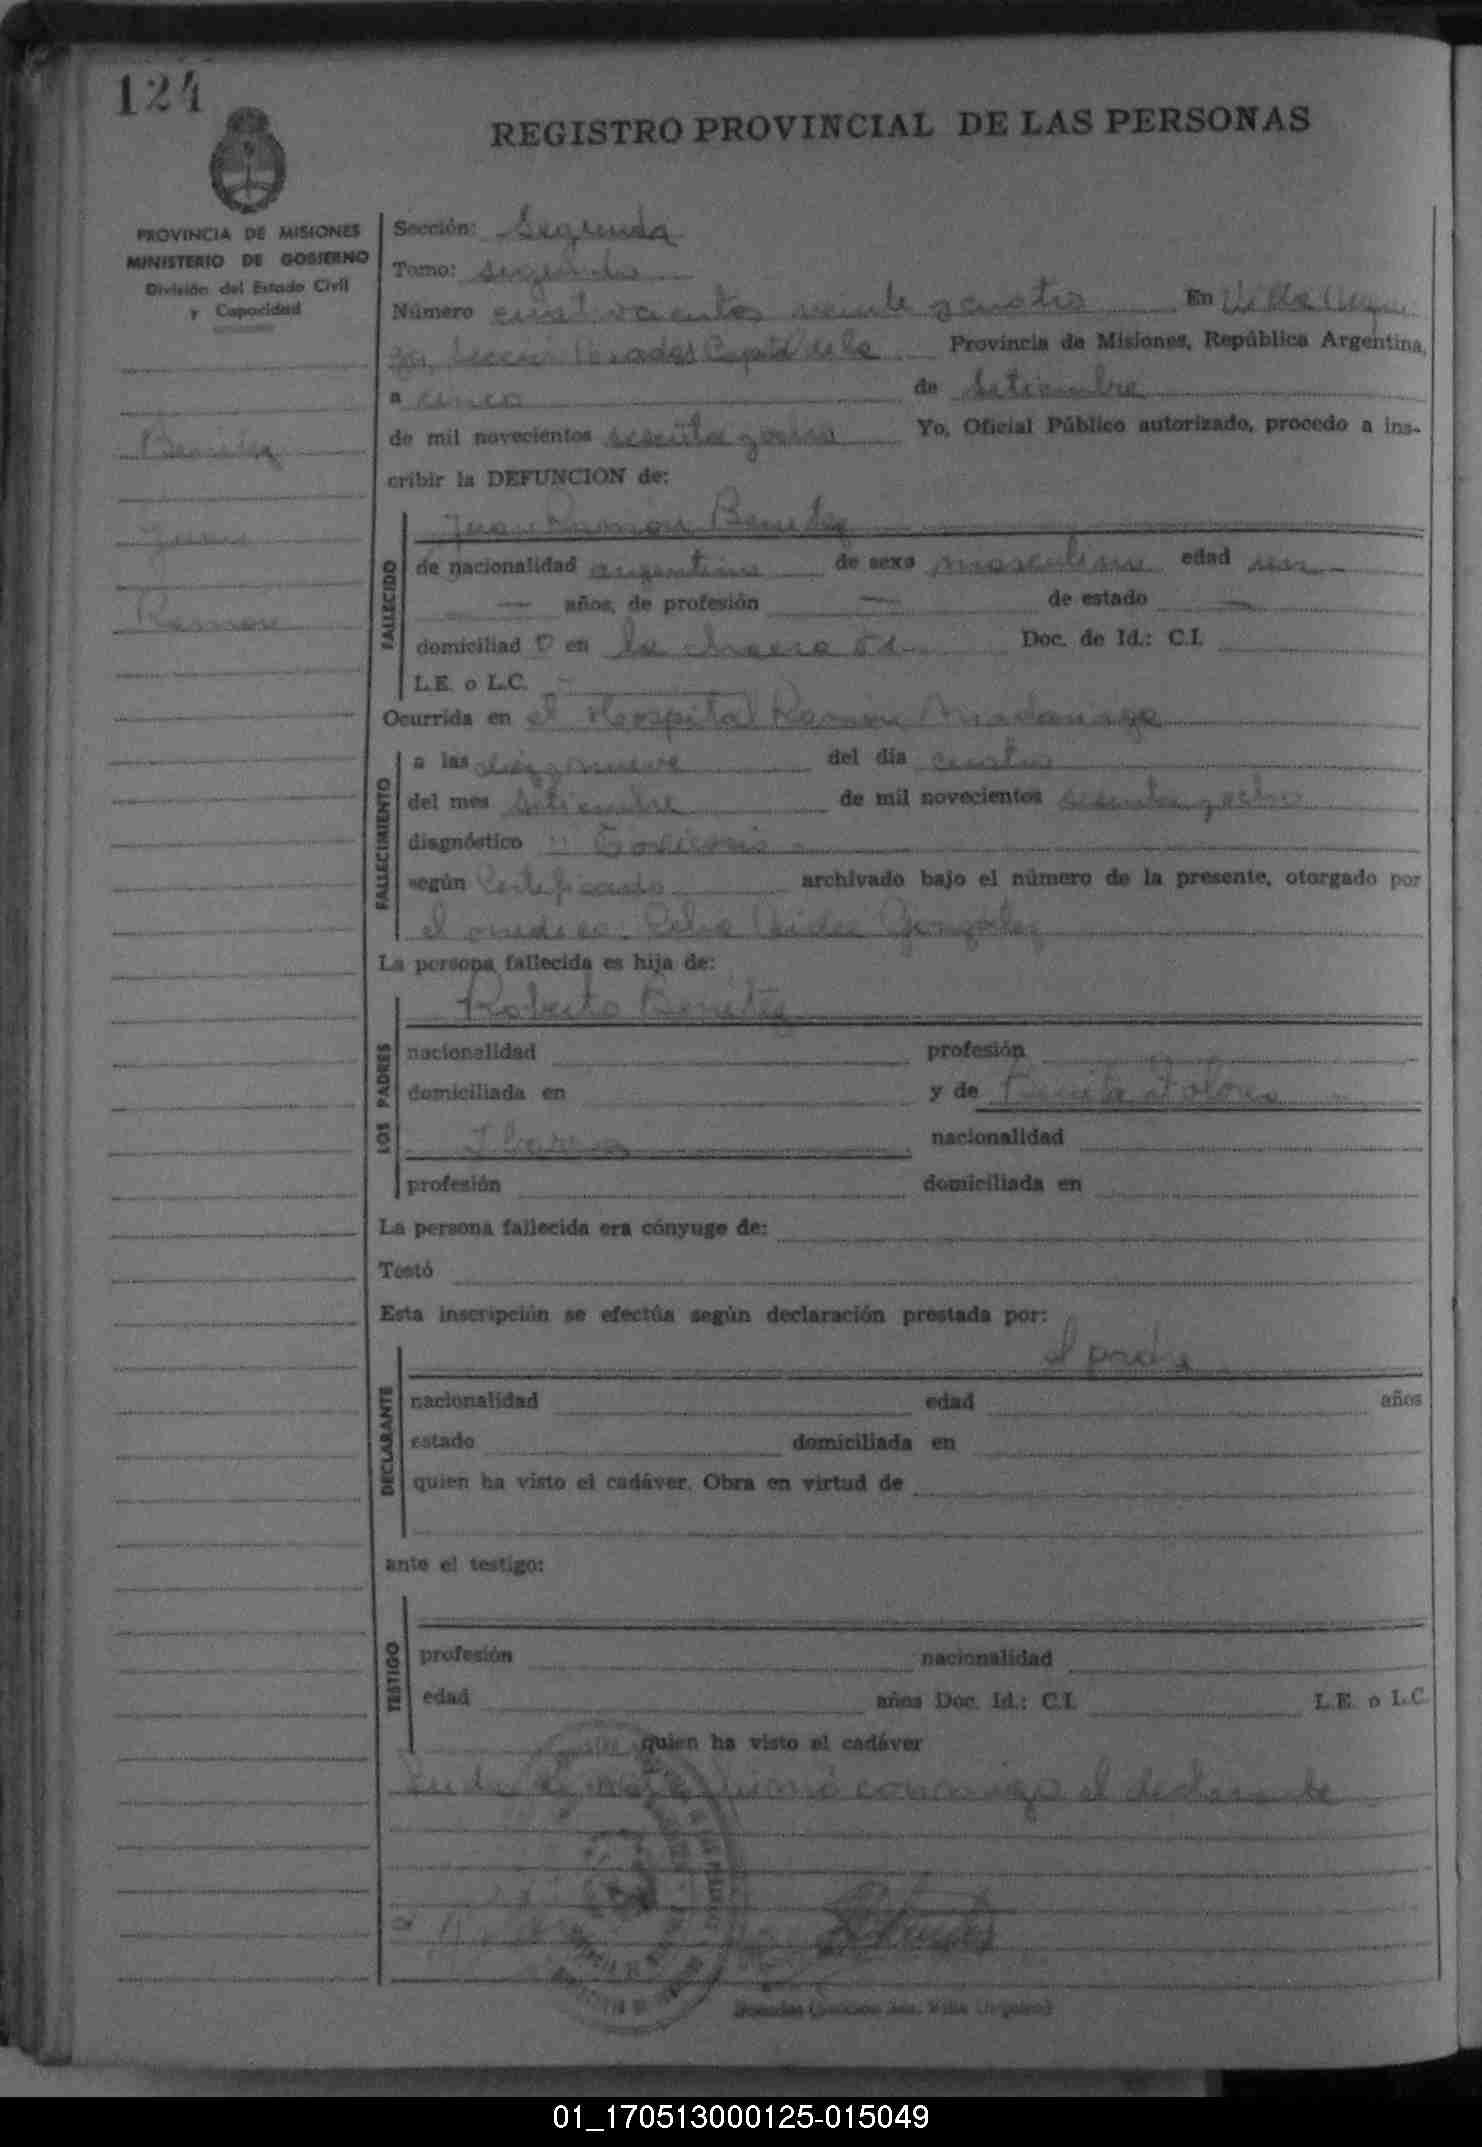 124
REGISTRO PROVINCIAL DE LAS PERSONAS
PROVINCIA DE MISIONES
MINISTERIO DE GOBIERNO
División del Estado Civil
y Capacidad
Benitez
Juan
Ramon
Sección: Segunda
Tomo: segundo
Número cuatrocientos veinte y cuatro En Villa Urqui
za, Posadas Capital de la Provincia de Misiones, República Argentina,
a cinco de Setiembre
de mil novecientos sesenta y ocho Yo, Oficial Público autorizado, procedo a ins-
cribir la DEFUNCION de:
FALLECIDO
Juan Ramon Benitez
de nacionalidad argentino de sexo masculino edad un
— años, de profesión — de estado —
domiciliad o en la chacra Doc. de Id.: C.I.
L.E. o L.C. —
Ocurrida en el Hospital Ramon Madariaga
FALLECIMIENTO
a las diez y nueve del día cuatro
del mes Setiembre de mil novecientos sesenta y ocho
diagnóstico " Toxicosis
según Certificado archivado bajo el número de la presente, otorgado por
el medico González
La persona fallecida es hija de:
LOS PADRES
Roberto Benitez
nacionalidad profesión
domiciliada en y de
nacionalidad
profesión domiciliada en
La persona fallecida era cónyuge de:
Testó
Esta inscripción se efectúa según declaración prestada por:
DECLARANTE
el padre
nacionalidad edad años
estado domiciliada en
quien ha visto el cadáver. Obra en virtud de
ante el testigo:
TESTIGO
profesión nacionalidad
edad años Doc. Id.: C.I. L.E. o L.C.
quien ha visto el cadáver
Leida el acta firmó conmigo el declarante
01_170513000125-015049